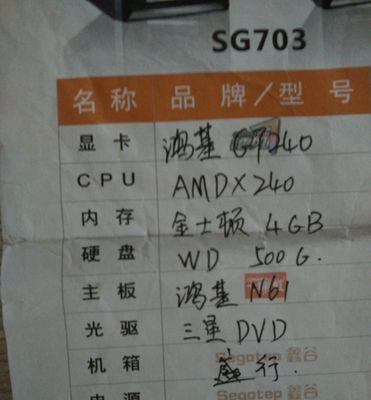 SG703
名称 品牌/型号
显卡 鸿基 GT240
CPU AMDX240
内存 金士顿 4GB
硬盘 WD 500G.
主板 鸿基 N61
光驱 三星DVD
机箱 Segotep 鑫谷
盛行.
电源 Segotep 鑫谷